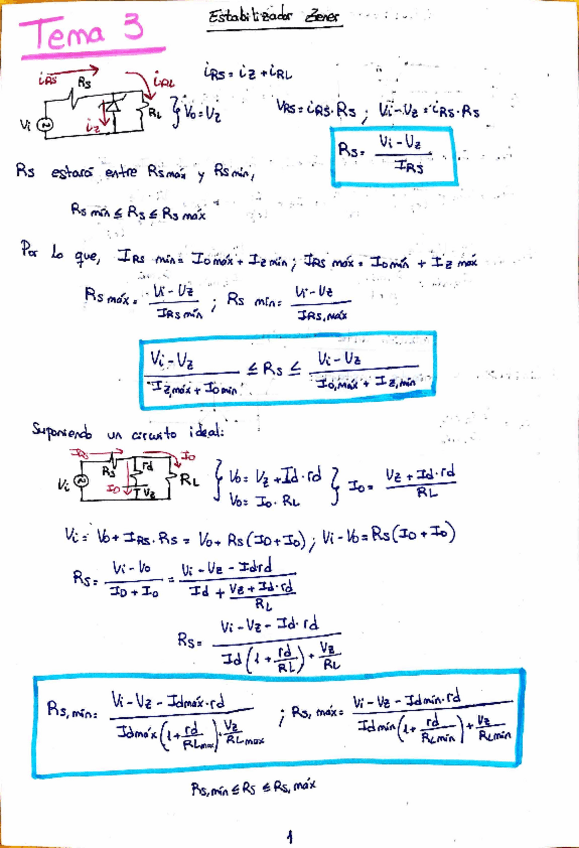 Estabilizador Zener
Tema 3
iRS Rs iRL
iRS = iz + iRL
Vi iz RL } Vo = Uz
VRS = iRS · Rs ; Vi - Vz = iRS · Rs
Rs = Vi - Vz / IRS
Rs estará entre Rs máx y Rs min,
Rs mín ≤ Rs ≤ Rs máx
Por lo que, IRS mín = Io máx + Iz mín ; IRS máx = Io mín + Iz máx
Rs máx = Vi - Vz / IRS mín ; Rs mín = Vi - Vz / IRS, máx
Vi - Vz / Iz,máx + Io mín ≤ Rs ≤ Vi - Vz / Io,máx + Iz,mín
Suponiendo un circuito ideal:
IRS Rs rd Io
Vi ID Vz RL { Vo = Vz + Id · rd
Vo = Io · RL } Io = Vz + Id · rd / RL
Vi = Vo + IRS · Rs = Vo + Rs (ID + Io) ; Vi - Vo = Rs (ID + Io)
Rs = Vi - Vo / ID + Io = Vi - Vz - Id rd / Id + Vz + Id · rd / RL
Rs = Vi - Vz - Id · rd / Id (1 + rd / RL) + Vz / RL
Rs, mín = Vi - Vz - Id máx · rd / Id máx (1 + rd / RL max) + Vz / RL max ; Rs, máx = Vi - Vz - Id mín · rd / Id mín (1 + rd / RL mín) + Vz / RL mín
Rs, mín ≤ Rs ≤ Rs, máx
1